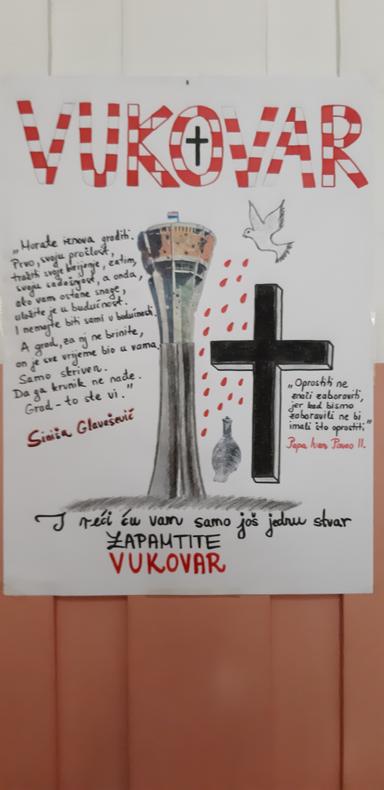 VUKOVAR
„Morate iznova graditi.
Prvo, svoju prošlost,
tražiti svoje porijenje, zatim,
svoju sadašnjost, a onda,
ako vam ostane snage,
uložite je u budućnost.
I nemojte biti sami u budućnosti.
A grad, za nj ne brinite,
on je sve vrijeme bio u vama,
Samo skriven.
Da ga krvnik ne nađe.
Grad - to ste vi."
Siniša Glavašević
„Oprostiti ne
znači zaboraviti,
jer kad bismo
zaboravili ne bi
imali što oprostiti."
Papa Ivan Pavao II.
I reći ću vam samo još jednu stvar
ZAPAMTITE
VUKOVAR